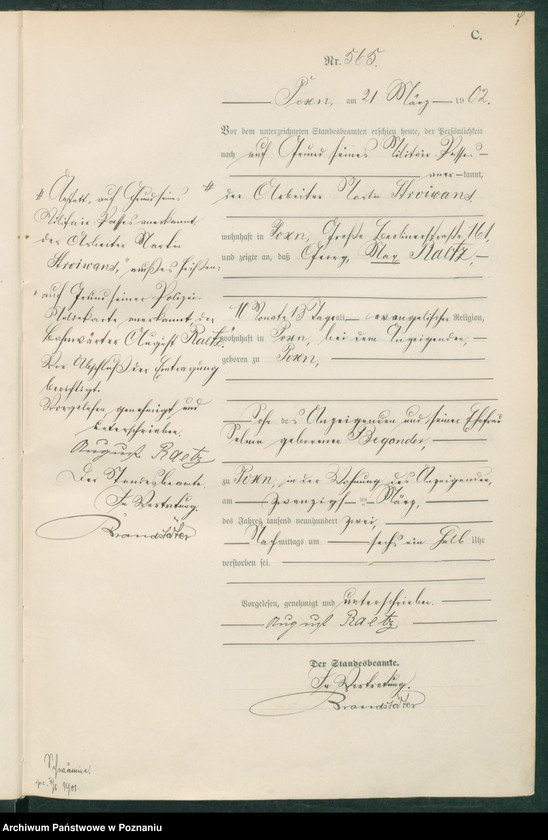 C.
Nr. 565.
Posen, am 21 März 1902.
Vor dem unterzeichneten Standesbeamten erschien heute, der Persönlichkeit
nach auf Grund seines Militair-Passes
anerkannt,
der Arbeiter Martin
wohnhaft in Posen, Große Berlinerstraße 161,
und zeigte an, daß Georg, Max Raetz,
10 Monate 13 Tage alt, evangelischer Religion,
wohnhaft in Posen, bei dem Anzeigenden,
geboren zu Posen,
Sohn des Anzeigenden und seiner Ehefrau
Selma geborenen
zu Posen, in der Wohnung des Anzeigenden,
am zwanzigsten März,
des Jahres tausend neunhundert zwei,
Nachmittags um sechs ein halb Uhr
verstorben sei.
Vorgelesen, genehmigt und unterschrieben.
August Raetz
Der Standesbeamte.
In Vertretung.
Brandstäter
Anstatt „auf Grund seines
Militair-Passes anerkannt
der Arbeiter Martin
muß es heißen:
„auf Grund seiner Polizei-
Meldekarte anerkannt, der
Bahnwärter August Raetz."
Vor Abschluß der Eintragung
berichtigt.
Vorgelesen, genehmigt und
unterschrieben
August Raetz
Der Standesbeamte
In Vertretung.
Brandstäter
Archiwum Państwowe w Poznaniu